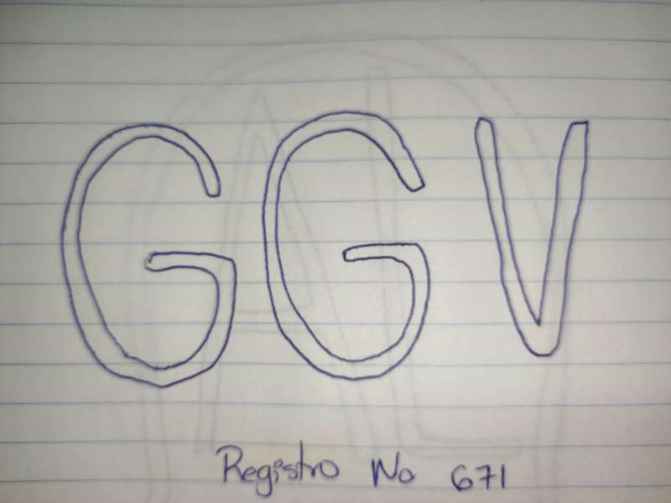 GGV
Registro No 671